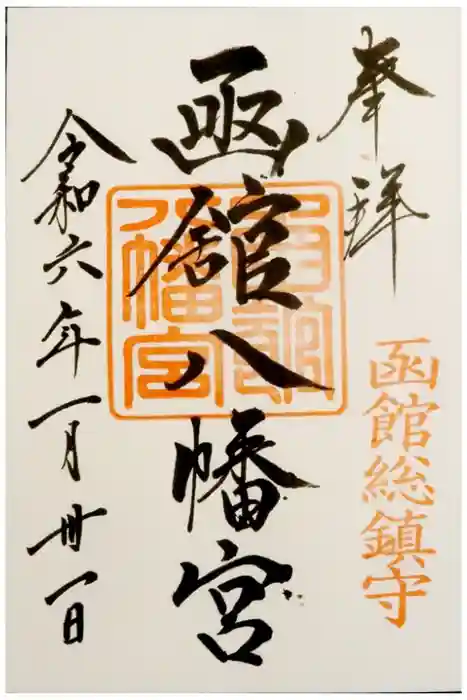 奉拝
函館総鎮守
函館八幡宮
函館
八幡宮
令和六年一月卅一日